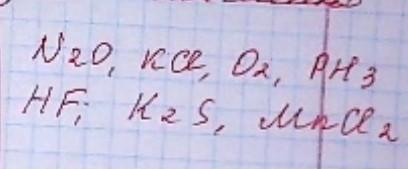 N2O, KCl, O2, PH3
HF; K2S, MnCl2